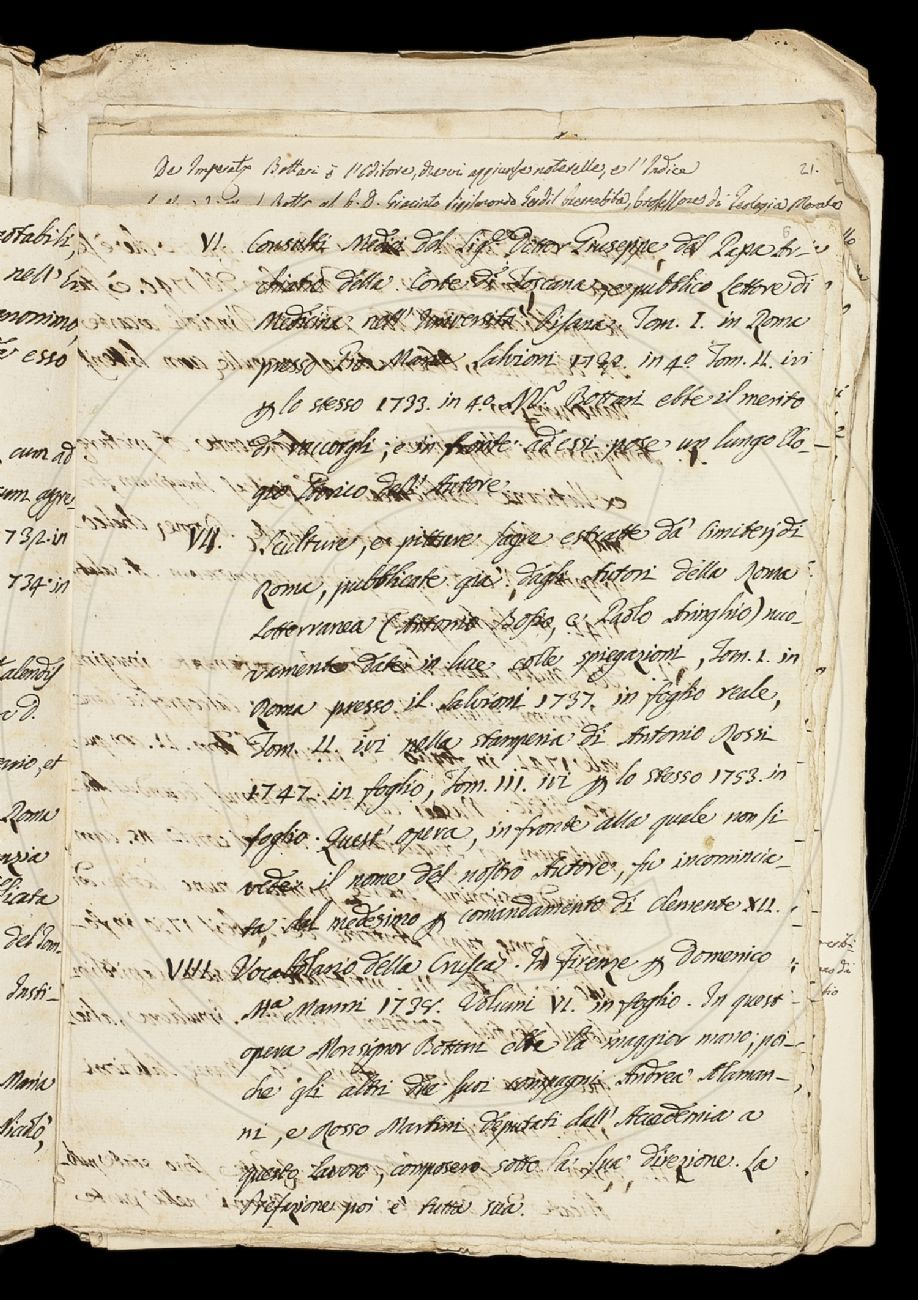 21.
De Imperat.
Bottari è l'Editore, che vi aggiunse noterelle, e l'Indice
Giacinto Sigismondo Gerdil Barnabita, Professore di Teologia Morale
6
VI. Consulti Medici del Sig.r Dottor Giuseppe del Papa Ar-
chiatro della Corte di Toscana, e pubblico Lettore di
Medicina nell' Università Pisana. Tom. I. in Roma
presso Gio. Maria Salvioni 1732. in 4o. Tom. II. ivi
p lo stesso 1733. in 4o. M.r Bottari ebbe il merito
di raccorgli; e in fronte ad essi pose un lungo Elo-
gio Storico dell' Autore.
VII. Sculture, e pitture sagre estratte da' Cimiterj di
Roma, pubblicate già dagli Autori della Roma
Sotterranea (Antonio Bosio, e Paolo Aringhio) nuo-
vamente date in luce colle spiegazioni, Tom. I. in
Roma presso il Salvioni 1737. in foglio reale,
Tom. II. ivi nella stamperia di Antonio Rossi
1747. in foglio, Tom. III. ivi p lo stesso 1753. in
foglio. Quest' opera, in fronte alla quale non si
vede il nome del nostro Autore, fu incomincia-
ta dal medesimo p comandamento di Clemente XII.
VIII. Vocabolario della Crusca. In Firenze p Domenico
M.a Manni 1738. Volumi VI. in foglio. In quest'
opera Monsignor Bottari ebbe la maggior mano; poi-
chè gli altri due suoi compagni Andrea Alaman-
ni, e Rosso Martini deputati dall' Accademia a
questo lavoro, composero sotto la sua direzione. La
Prefazione poi è tutta sua.
notabili,
nell'
anonimo
esso
cum ad
cum agre-
732. in
734. in
alendis
Roma
licata
del Tom.
Insti-
Maria
Niccolò,